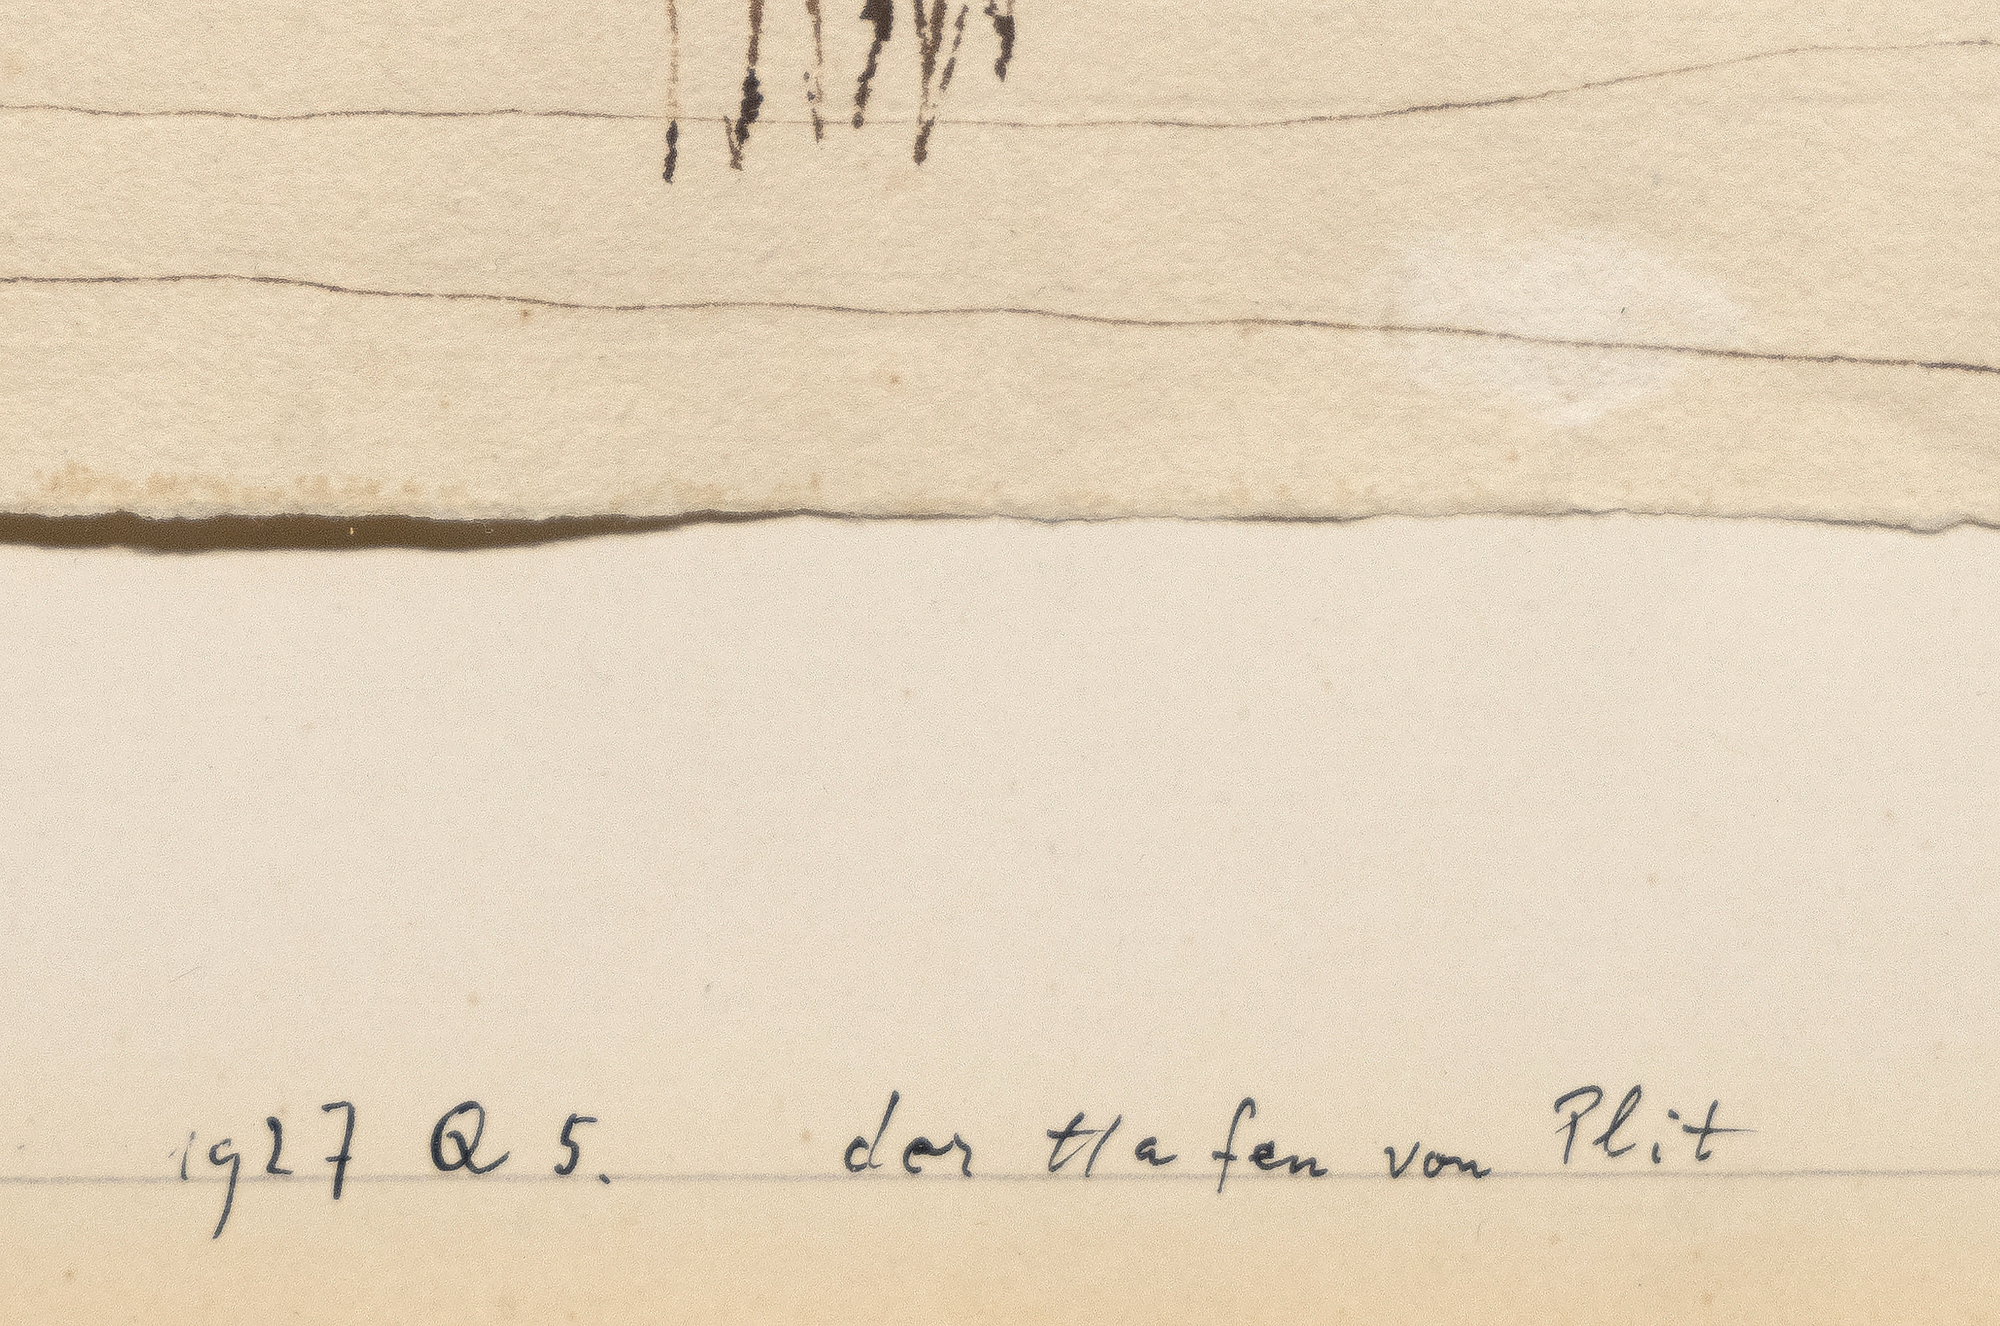 1927 Q 5. der Hafen von Plit